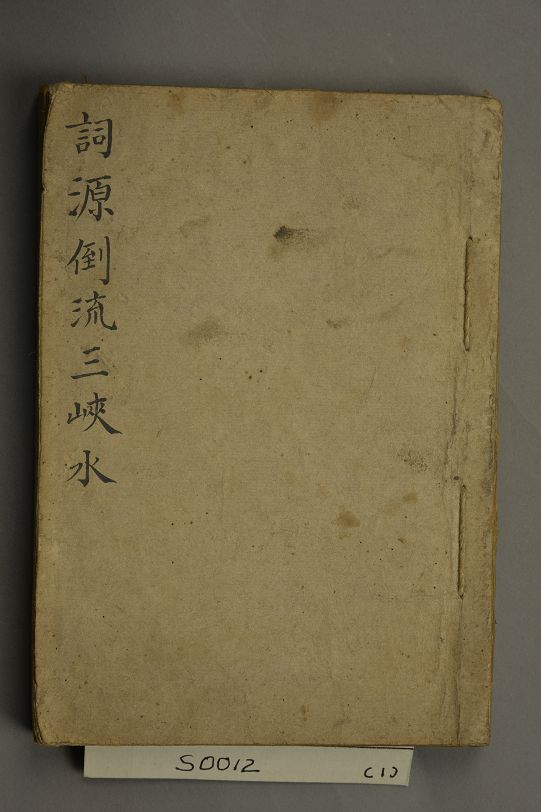 詞源倒流三峽水
S0012 (1)